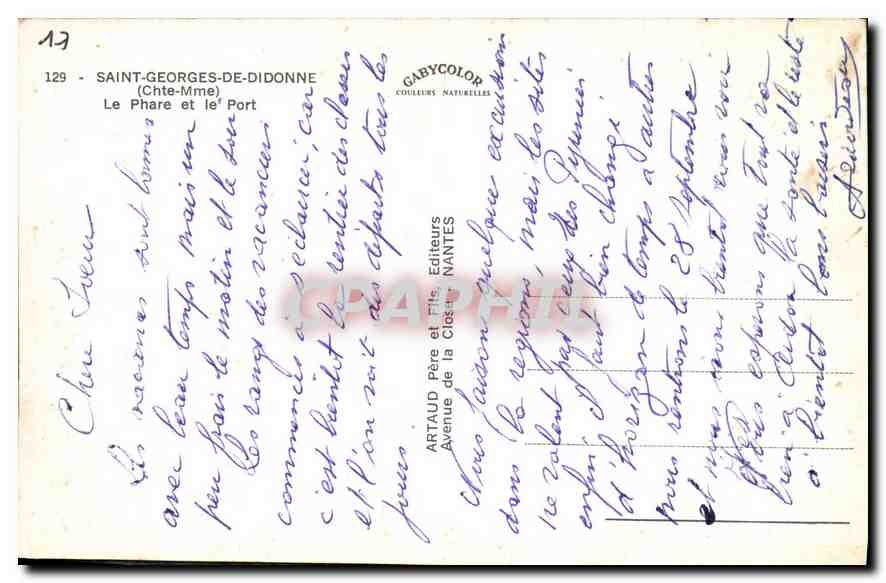 17
129 - SAINT-GEORGES-DE-DIDONNE
(Chte-Mme)
Le Phare et le Port
GABYCOLOR
COULEURS NATURELLES
ARTAUD Père et Fils, Editeurs
Avenue de la Close - NANTES
CPAPHIL
Chère Soeur
Les vacances sont bonnes
avec beau temps mais un
peu frais le matin et le soir
Les rangs des vacanciers
commences a s'eclaircir, car
c'est bientot la rentrée des classes
et l'on voit des départs tous les
jours
Nous faison quelque excursion
dans la regions, mais les sites
ne valent pas ceux des Pyrenees
enfin il faut bien changé
d'horizon de temps a autres
nous rentrons le 28 Septembre
et nous irons bientot vous voir
Nous esperons que tout va
bien a la santé et le reste
a bientot bons baisers